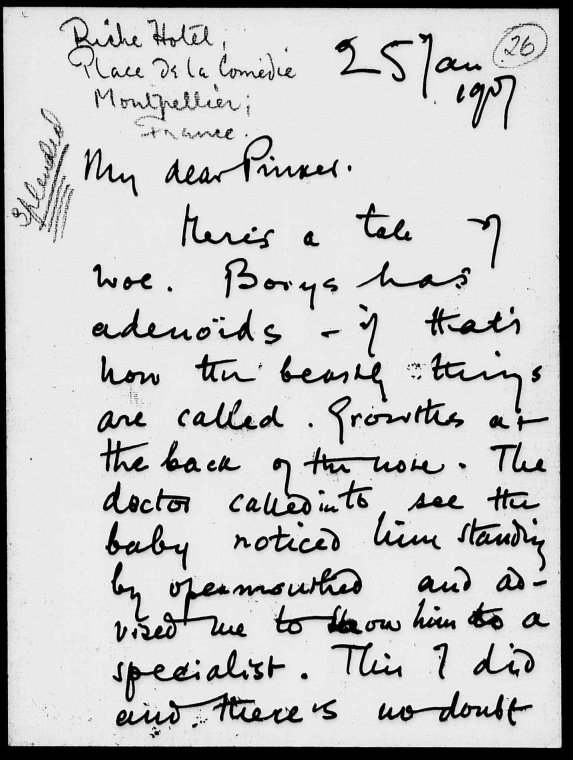 Riche Hotel,
Place De la Comédie
Montpellier;
France.
25 Jan
1907
26
Splendid
My dear Pinker.
Here's a tale of
woe. Borys has
adenoïds – if that's
how the beastly things
are called. Growths at
the back of the nose. The
doctor called in to see the
baby noticed him standing
by openmouthed and ad-
vised me to show him to a
specialist. This I did
and there's no doubt